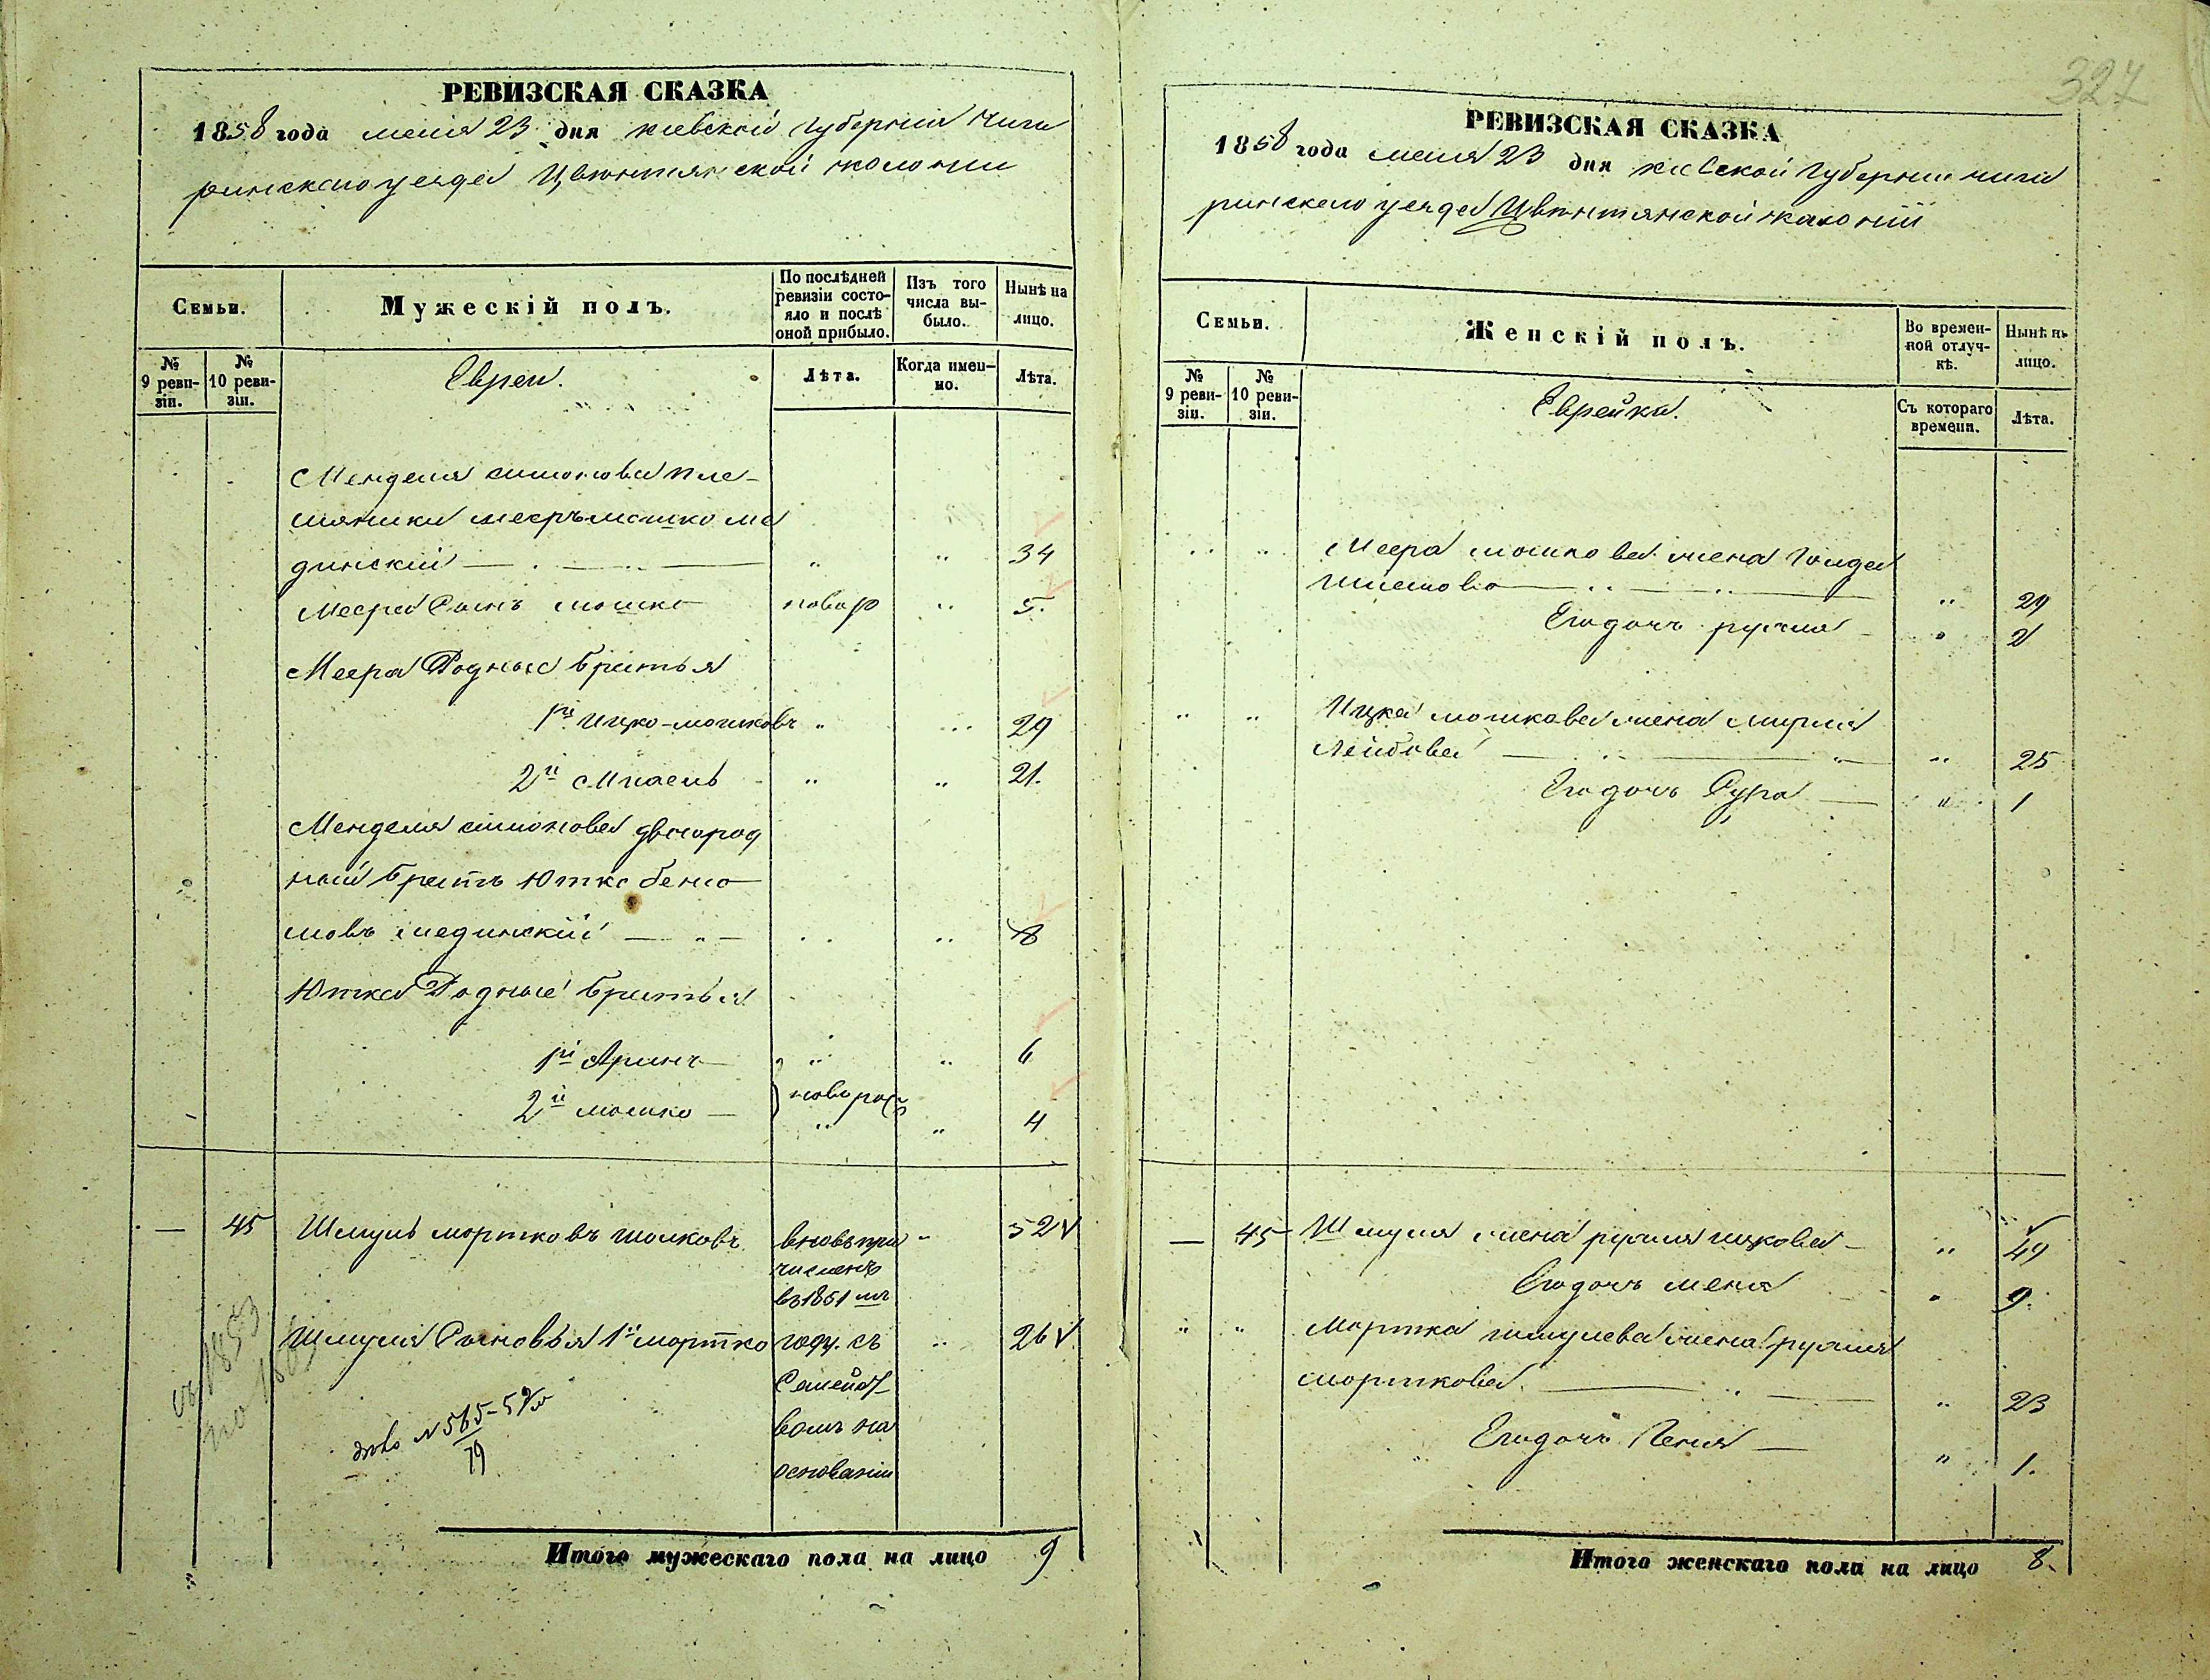 РЕВИЗСКАЯ СКАЗКА
1858 года мая 23 дня киевской губернии Чиги
ринскаго уезда Цвѣтнянской колонии
Семьи.
Мужескій полъ.
По послѣдней ревизіи состояло и послѣ оной прибыло.
Изъ того числа выбыло.
Нынѣ на лицо.
№ 9 ревизіи.
№ 10 ревизіи.
Евреи.
Лѣта.
Когда именно.
Лѣта.
Менделя симонова пле-
мяники мееръ мошко ме
динскій 34
Меера Сынъ мошко новор 5.
Меера Родные братья
1й ицко-мошковъ 29
2й 21.
Менделя симонова двоюрод
ный братъ Ютко бенио
мовъ мединскій 8
Ютка Родные братья
1й Аринъ 6
2й мошко новорож 4
— 45 Шмуль мортковъ 52
вновь при
численъ
въ 1851 мъ
Шмуля Сыновья 1й мортко году. съ 26
Семейст
вомъ на
основании
съ 1853
по
дѣло № 565-59/м
79
Итого мужескаго пола на лицо 9
327
РЕВИЗСКАЯ СКАЗКА
1858 года мая 23 дня киевской губернии чиги
ринскаго уезда Цвѣтнянской калоніи
Семьи.
Женскій полъ.
Во временной отлучкѣ.
Нынѣ на лицо.
№ 9 ревизіи.
№ 10 ревизіи.
Еврейки.
Съ котораго времени.
Лѣта.
Меера мошкова жена Голда
29
Его дочь рухля 2
Ицка мошкова жена
Лейбова 25
Его дочь Сура 1
— 45 Шмуля жена рухля ицкова 49
Его дочь меня 9.
Мортка шмулева жена рухля
морткова 23
Его дочь Геня 1.
Итого женскаго пола на лицо 8.